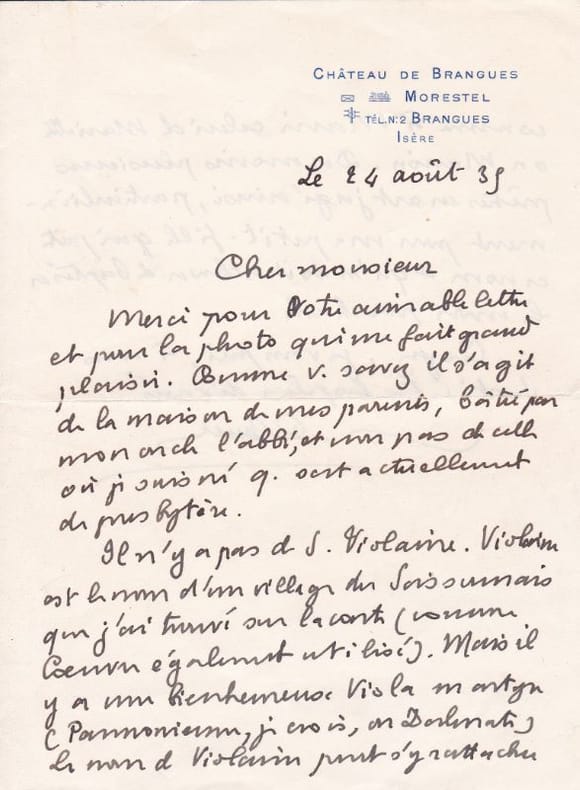 CHÂTEAU DE BRANGUES
MORESTEL
TÉL. N:2 BRANGUES
ISÈRE
Le 24 août 35
Cher monsieur
Merci pour votre aimable lettre
et pour la photo qui me fait grand
plaisir. Comme v. savez il s'agit
de la maison de mes parents, bâtie par
mon oncle l'abbé, et non pas de celle
où je suis né q. sert actuellement
de presbytère.
Il n'y a pas de S. Violaine. Violaine
est le nom d'un village du Soissonnais
que j'ai trouvé sur la carte (comme
Coeuvre également utilisé). Mais il
y a une bienheureuse Viola martyre
(Pannonienne, je crois, ou Dalmate)
Le nom de Violaine peut s'y rattacher